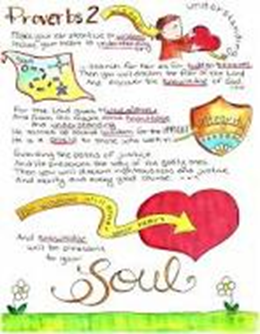 Proverbs 2
understanding
Make your ear attentive to wisdom
Incline your heart to understanding
search for her as for hidden treasures
Then you will discern the fear of the Lord
And discover the knowledge of God
For the Lord gives wisdom
And from His mouth come knowledge
and understanding
He stores up sound wisdom for the upright
He is a shield to those who walk in
integrity
Guarding the paths of justice
And He preserves the way of His godly ones
Then you will discern righteousness and justice
And equity and every good course
For wisdom will
enter your heart
And knowledge
will be pleasant
to your
Soul